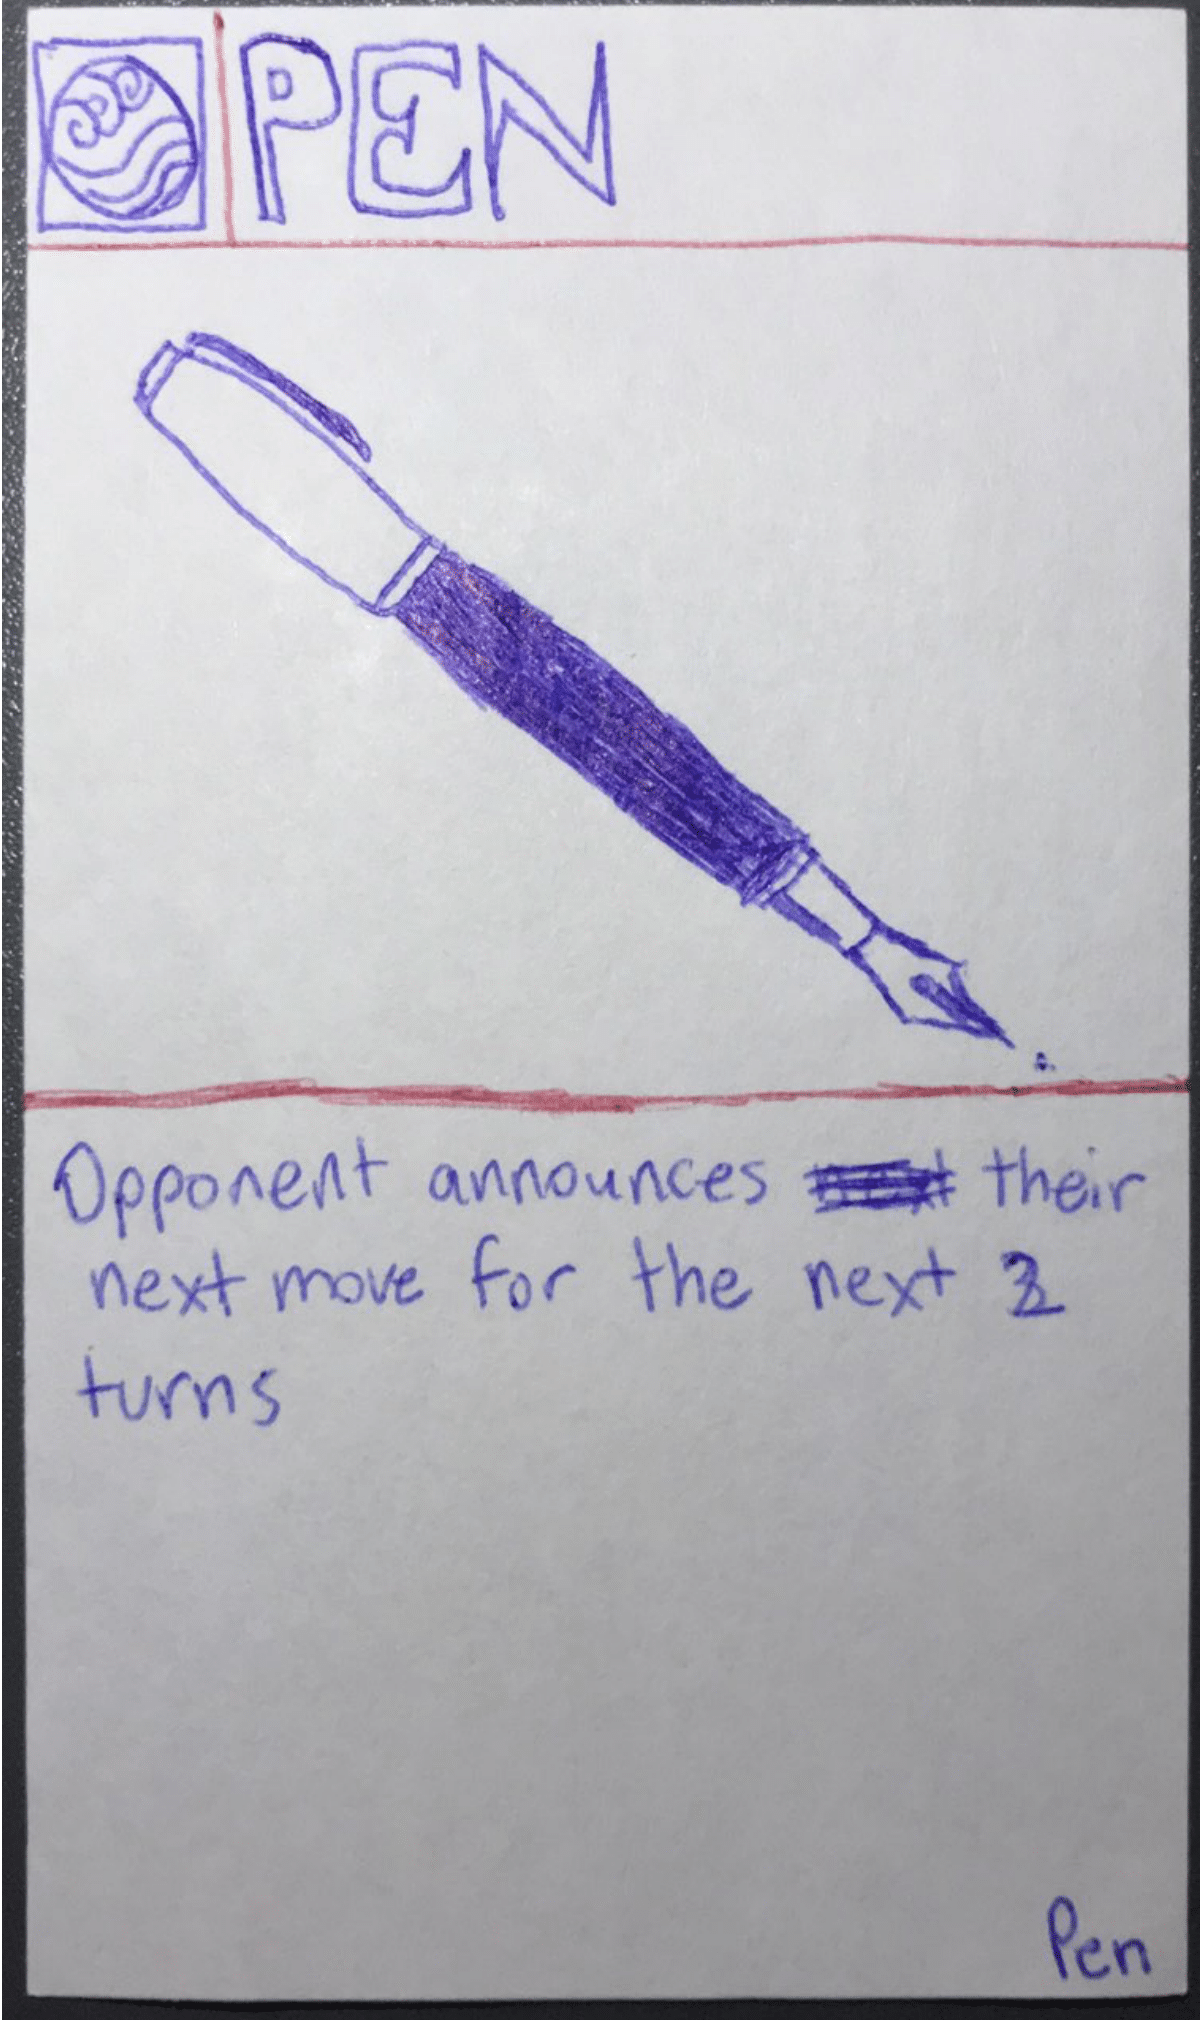 PEN
Opponent announces their
next move for the next
turns
Pen